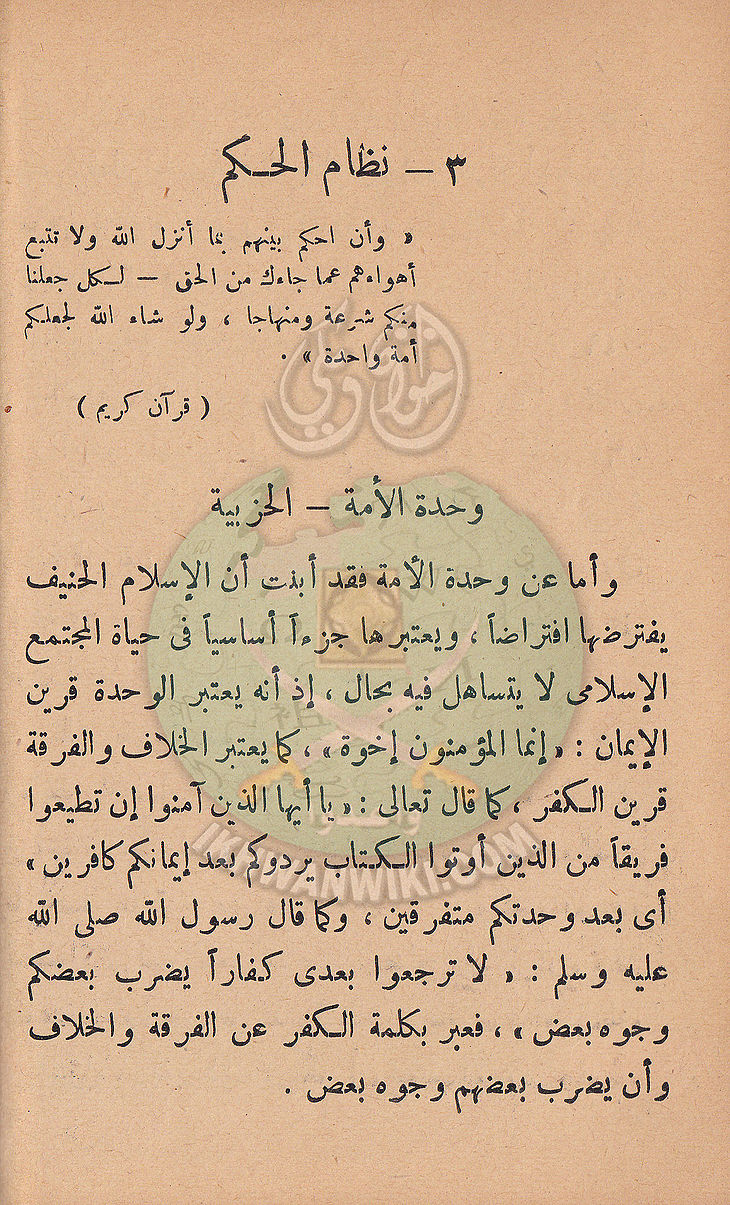 ٣ — نظام الحكم
« وأن احكم بينهم بما أنزل الله ولا تتبع
أهواءهم عما جاءك من الحق — لكل جعلنا
منكم شرعة ومنهاجا ، ولو شاء الله لجعلكم
أمة واحدة » .
( قرآن كريم )
وحدة الأمة — الحزبية
وأما عن وحدة الأمة فقد أبنت أن الإسلام الحنيف
يفترضها افتراضاً ، ويعتبرها جزءاً أساسياً فى حياة المجتمع
الإسلامى لا يتساهل فيه بحال ، إذ أنه يعتبر الوحدة قرين
الإيمان : « إنما المؤمنون إخوة » ، كما يعتبر الخلاف والفرقة
قرين الكفر ، كما قال تعالى : « يا أيها الذين آمنوا إن تطيعوا
فريقاً من الذين أوتوا الكتاب يردوكم بعد إيمانكم كافرين »
أى بعد وحدتكم متفرقين ، وكما قال رسول الله صلى الله
عليه وسلم : « لا ترجعوا بعدى كفاراً يضرب بعضكم
وجوه بعض » ، فعبر بكلمة الكفر عن الفرقة والخلاف
وأن يضرب بعضهم وجوه بعض .
إخوان ويكي
IKHWANWIKI.COM